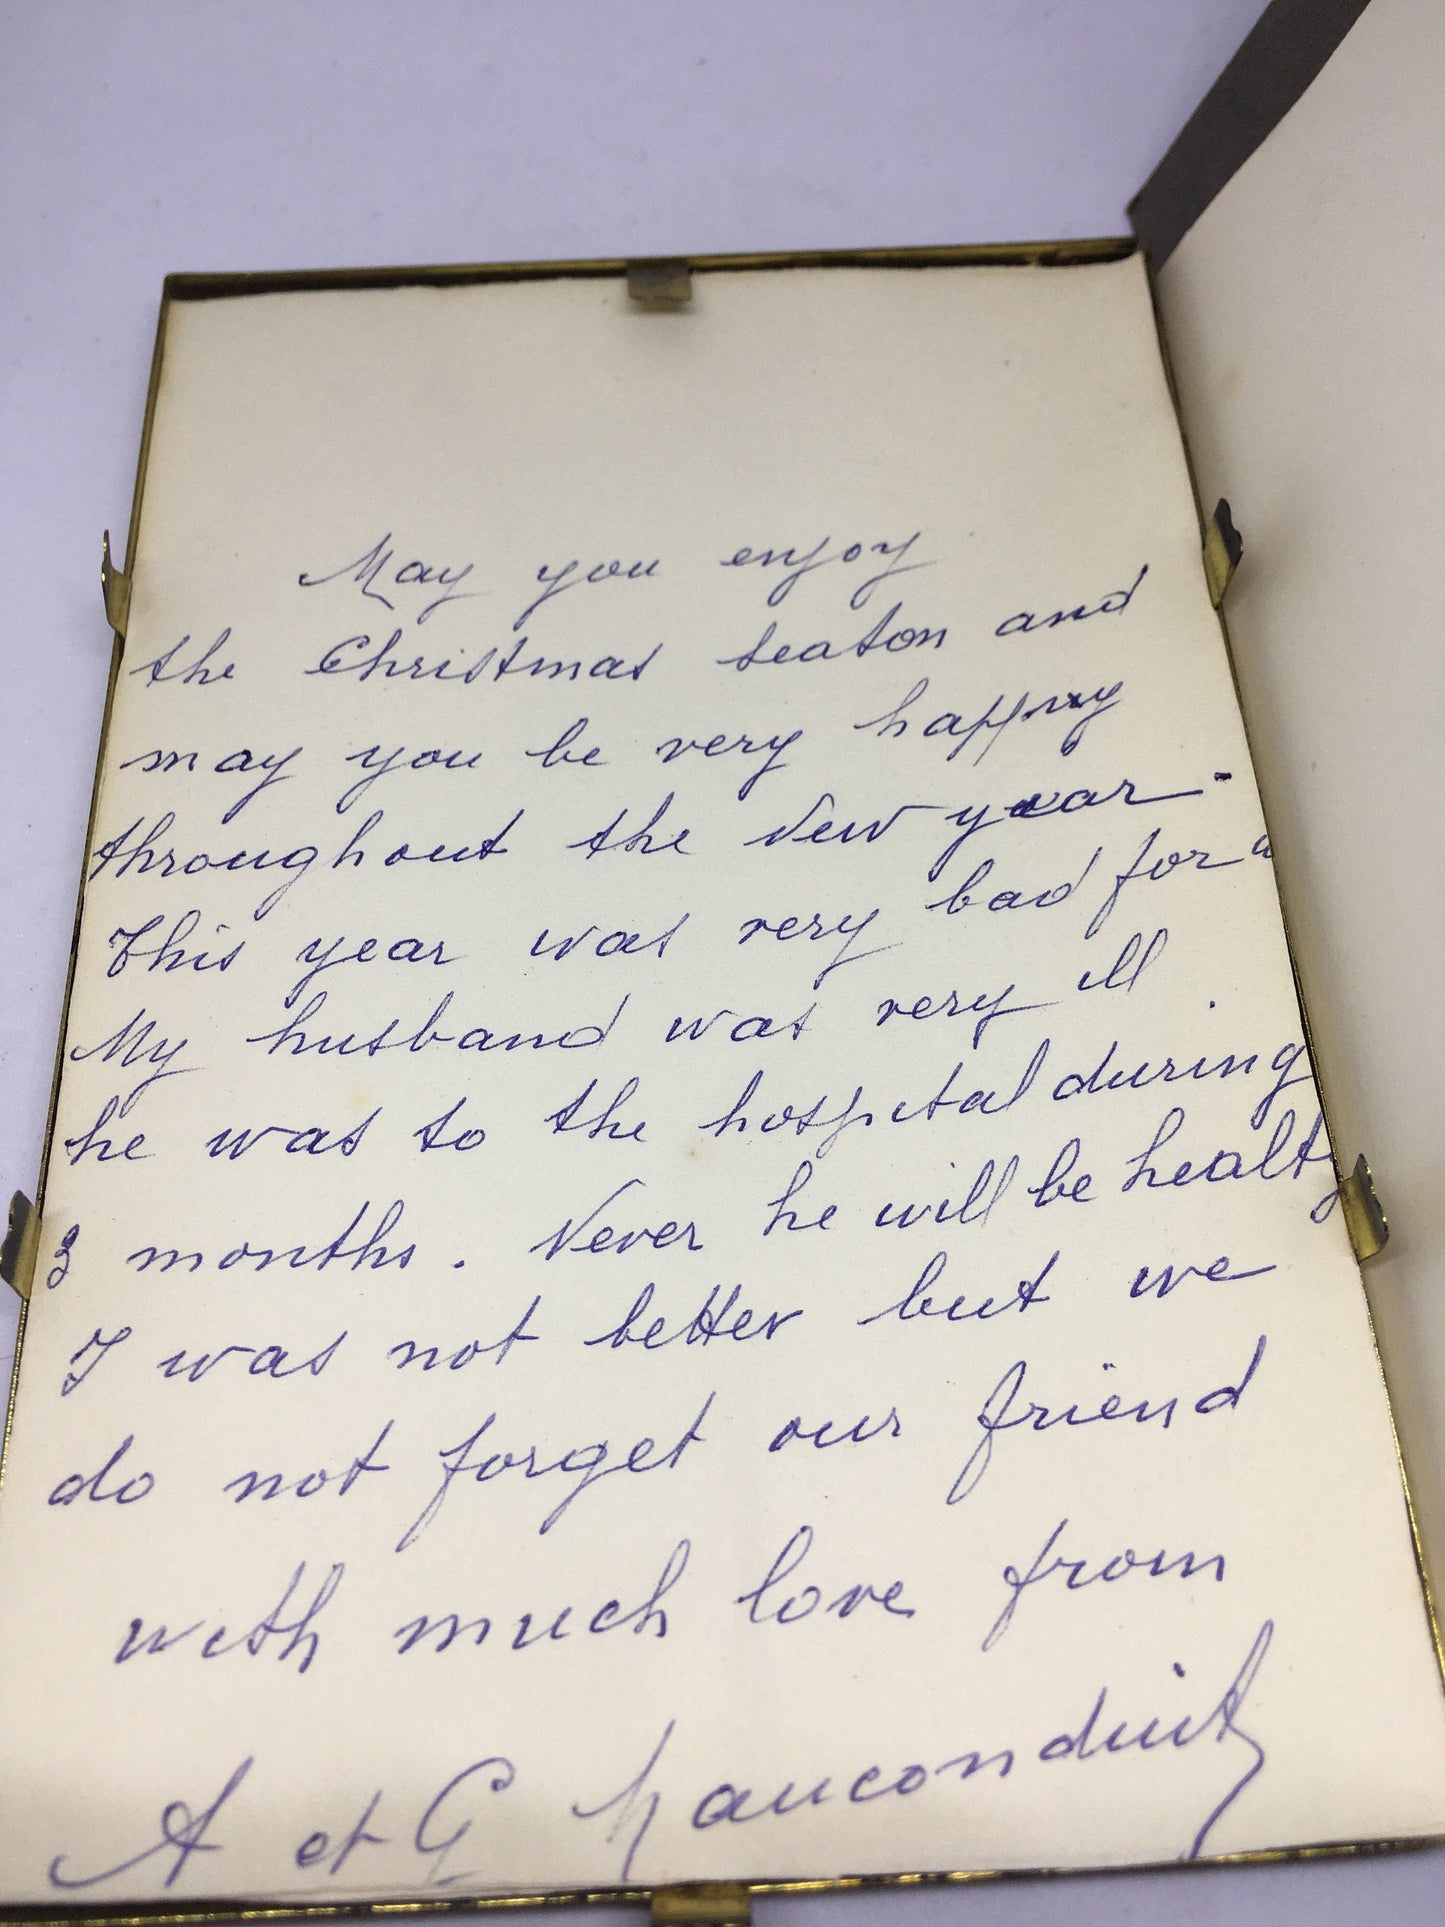 May you enjoy
the Christmas season and
may you be very happy
throughout the New year -
This year was very bad for
My husband was very ill .
he was to the hospital during
3 months. Never he will be healty
I was not better but we
do not forget our friend
with much love from
A et G Mauconduit